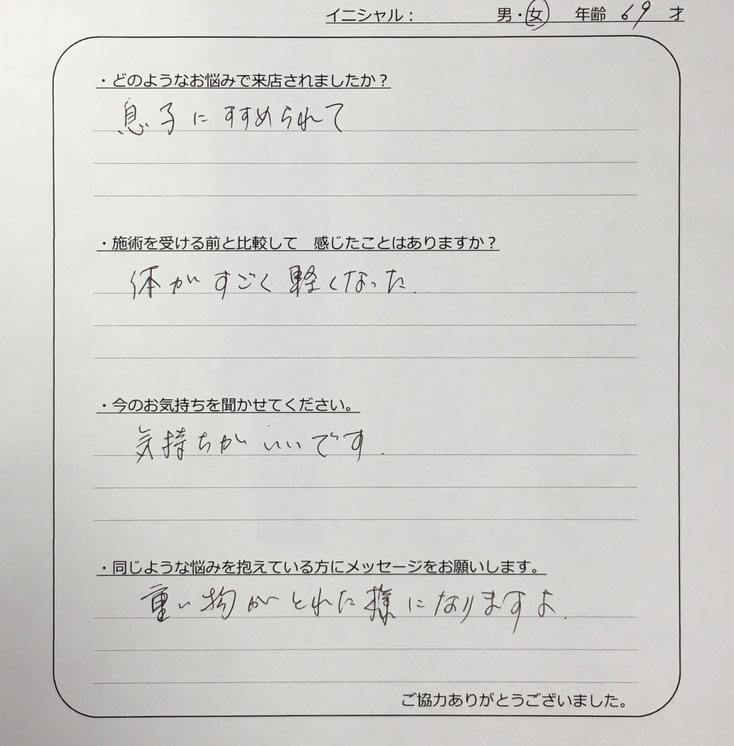 イニシャル： 男・女 年齢 69 才
・どのようなお悩みで来店されましたか？
息子にすすめられて
・施術を受ける前と比較して 感じたことはありますか？
体がすごく軽くなった.
・今のお気持ちを聞かせてください。
気持ちがいいです.
・同じような悩みを抱えている方にメッセージをお願いします。
重い物がとれた様になりますよ.
ご協力ありがとうございました。